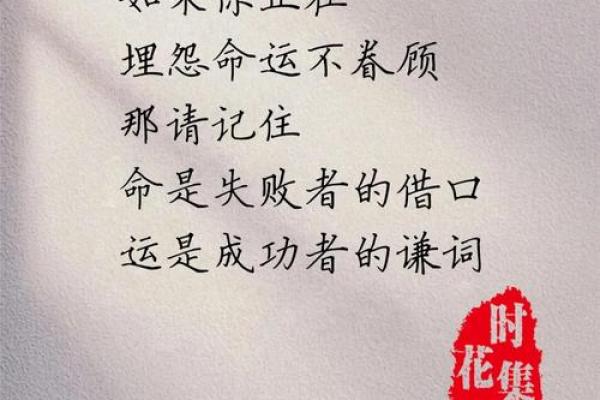 如果你正在
埋怨命运不眷顾
那请记住
命是失败者的借口
运是成功者的谦词
时
花集